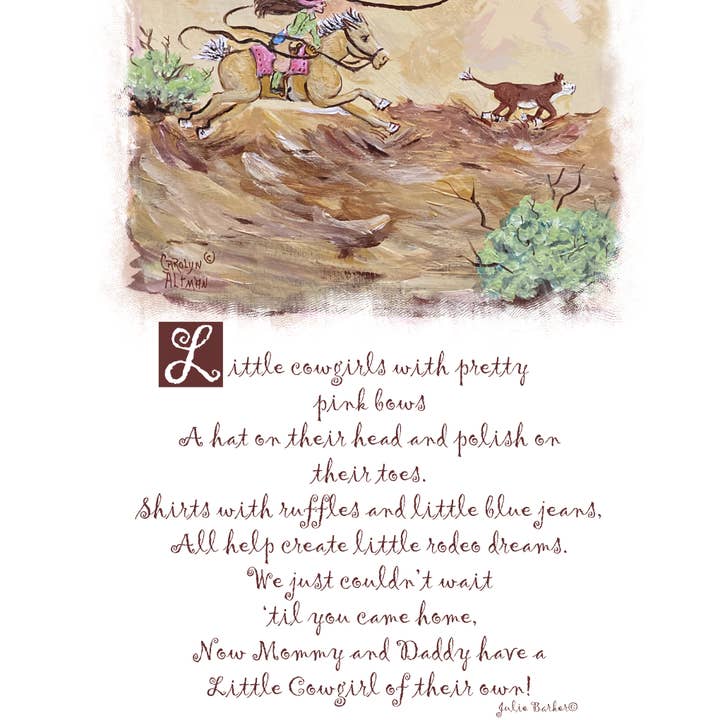 Carolyn©
Altman
Little cowgirls with pretty
pink bows
A hat on their head and polish on
their toes.
Shirts with ruffles and little blue jeans,
All help create little rodeo dreams.
We just couldn't wait
'til you came home,
Now Mommy and Daddy have a
Little Cowgirl of their own!
Julie Barker©